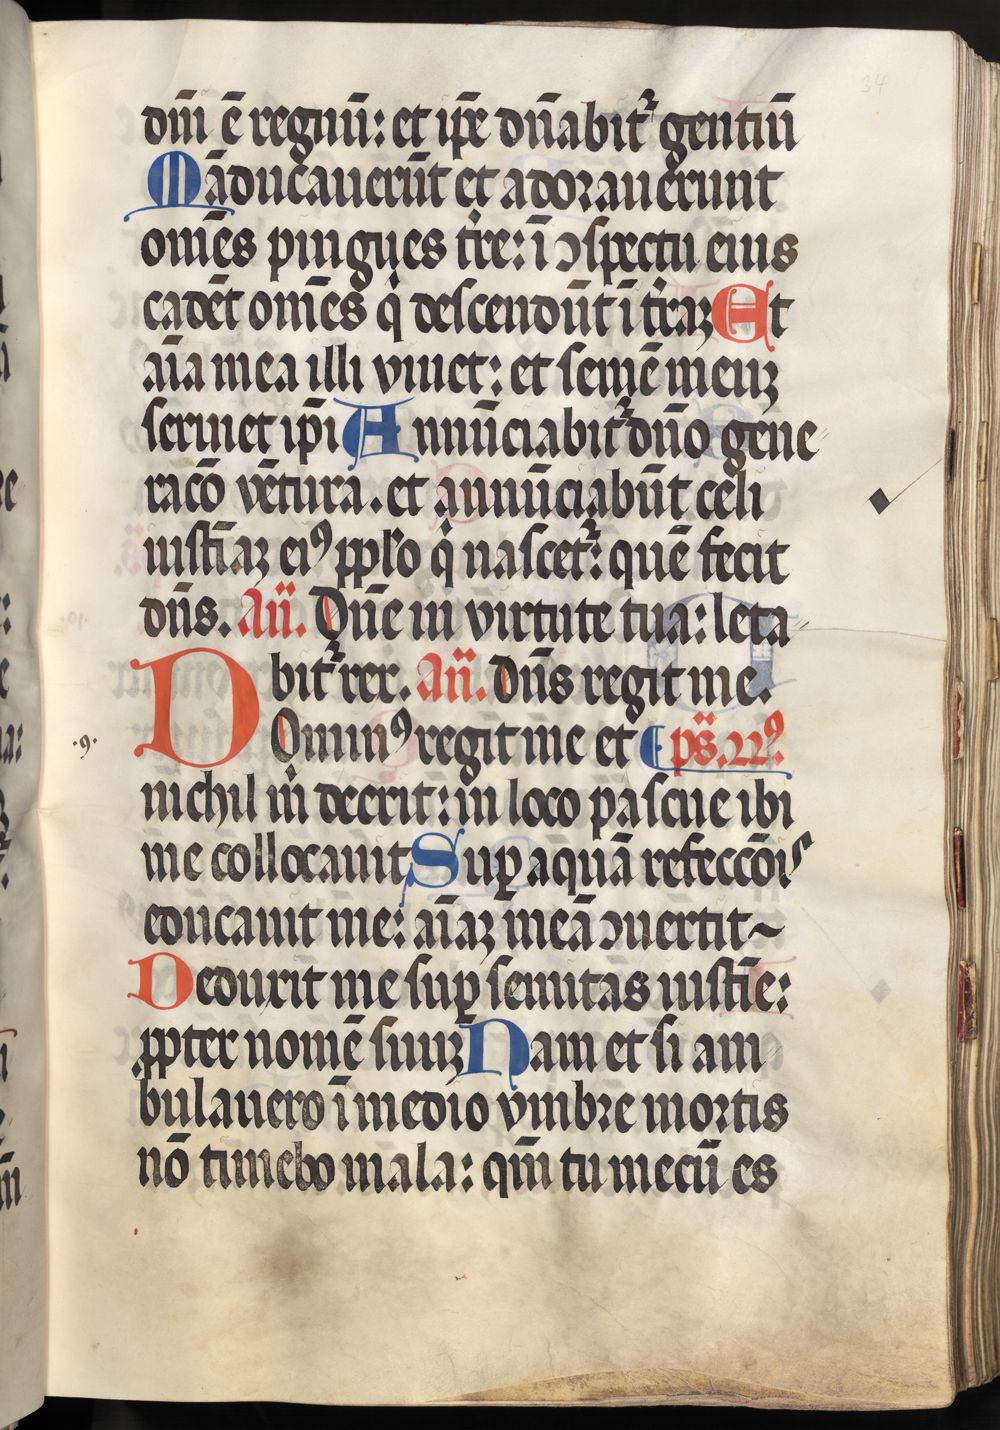 34
dm̄ ē regnū: et ip̄e dn̄abit᷑ gentiū
Māducauerūt et adorauerunt
om̄es pingues tr̄e: ī ↄspectu eius
cadēt om̄es qͥ descendūt ī tr̄aꝫ Et
aīa mea illi viuet: et semē meuꝫ
seruiet ip̄i Annūciabit᷑ dn̄o gene
racō vētura. et annūciabūt celi
iustīaꝫ eiꝰ pplō qͥ nascet᷑: quē fecit
dn̄s. An̄. Dn̄e in virtute tua: leta
bit᷑ rex. An̄. Dn̄s regit me.
Dominꝰ regit me et ps̄. 22ꝰ.
·9·
nichil m̄ deerit: in loco pascue ibi
me collocauit Suꝑ aquā refeccōis
educauit me: aīaꝫ meā ↄuertit~
Deduxit me suꝑ semitas iustīe:
ꝓpter nomē suuꝫ Nam et si am
bulauero ī medio vmbre mortis
nō timebo mala: qm̄ tu mecū es